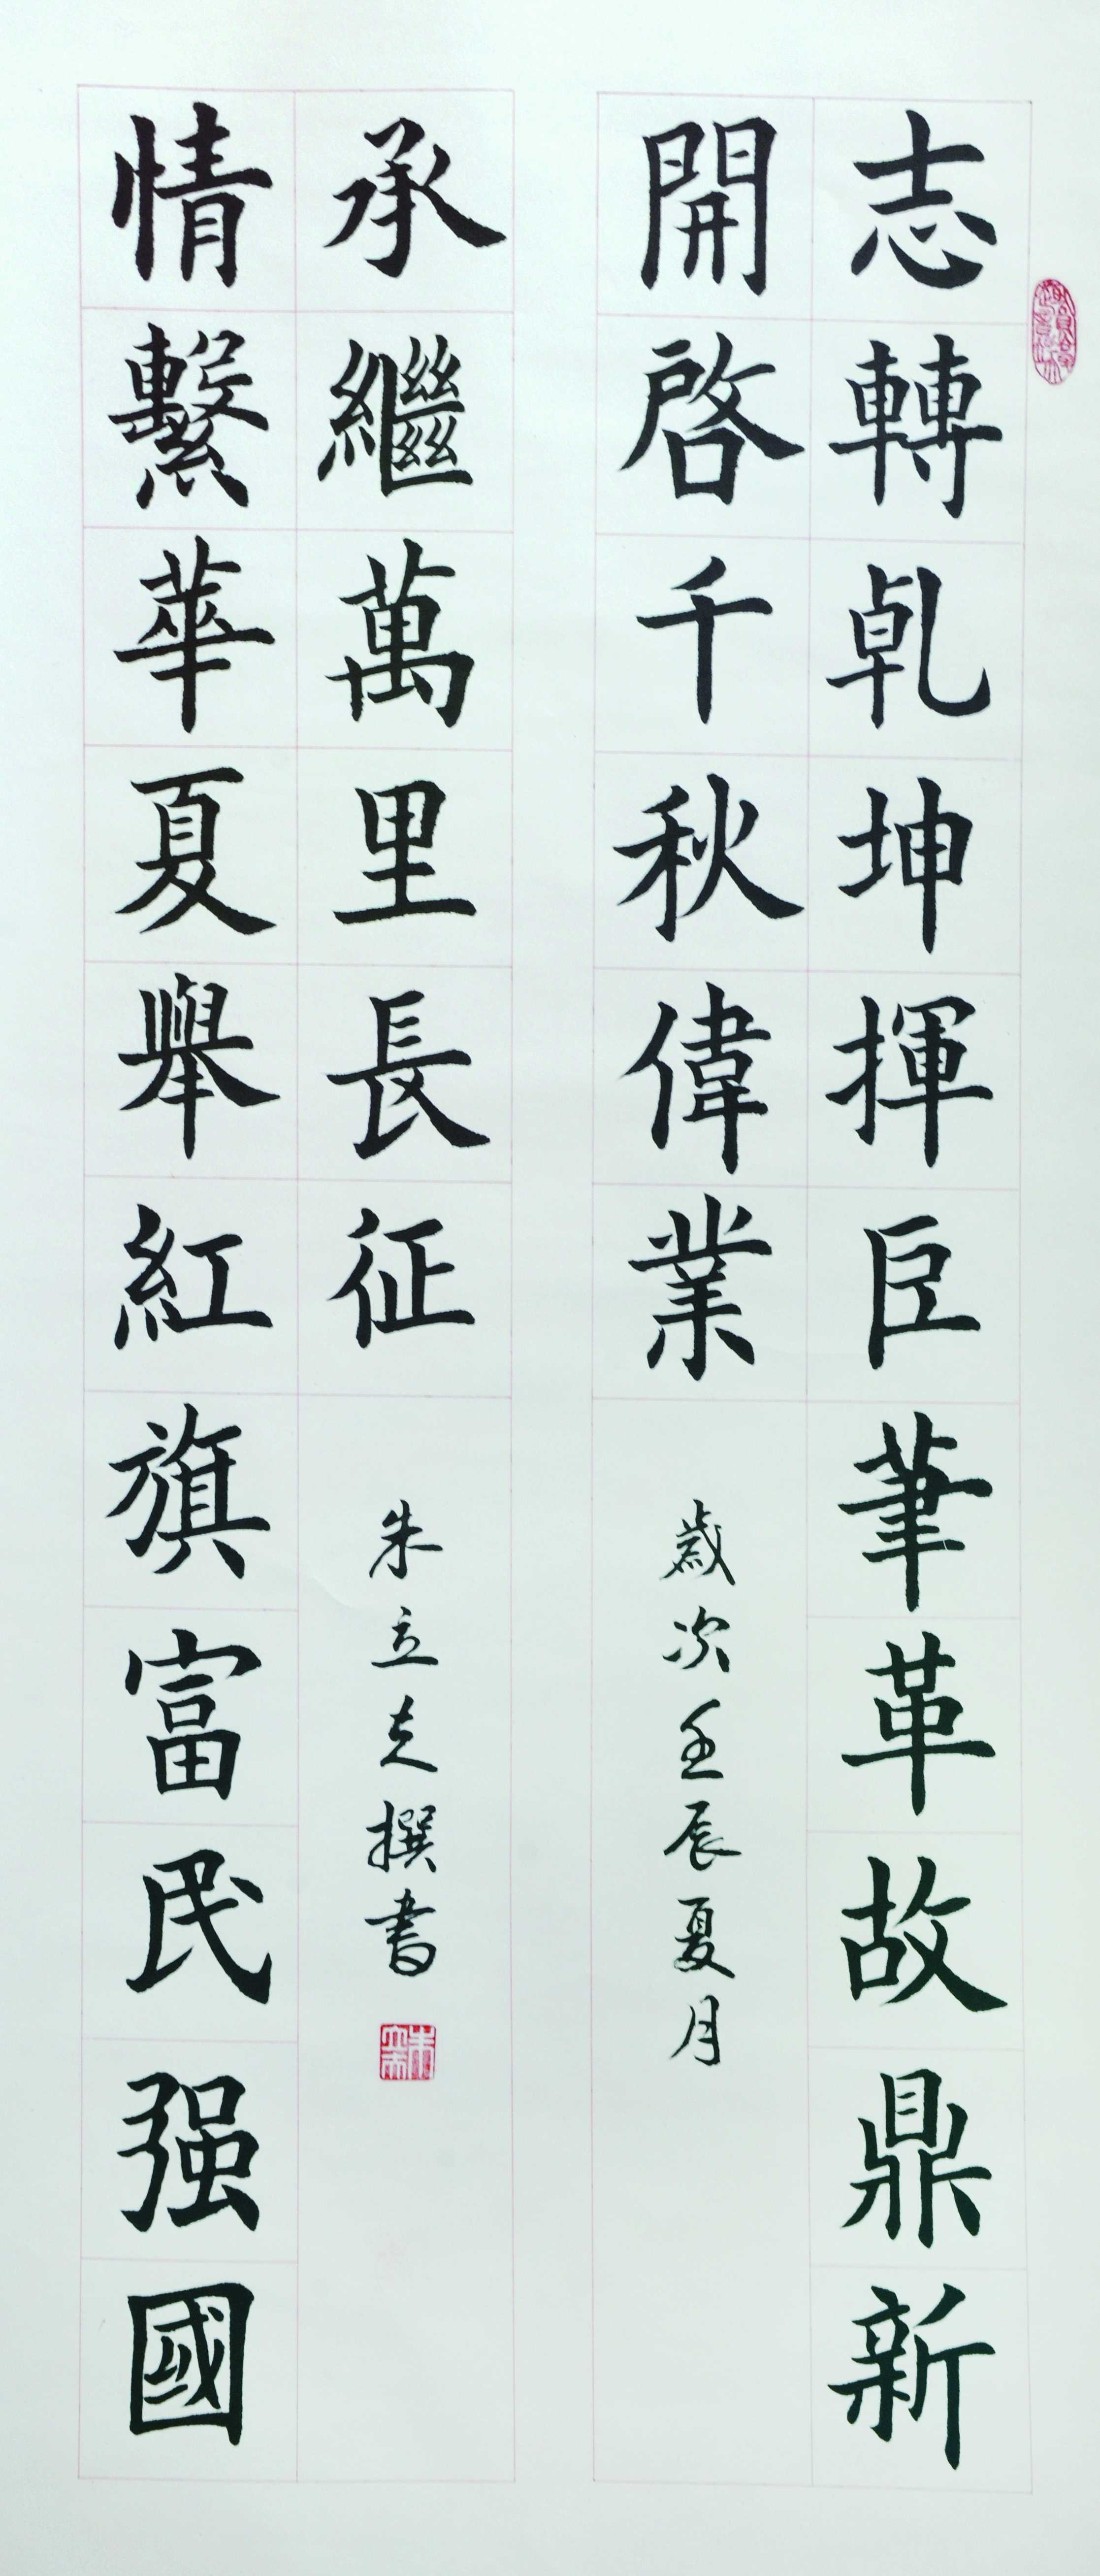 志轉乾坤揮巨筆革故鼎新
開啓千秋偉業
歲次壬辰夏月
情繫華夏舉紅旗富民强國
承繼萬里長征
朱立夫撰書